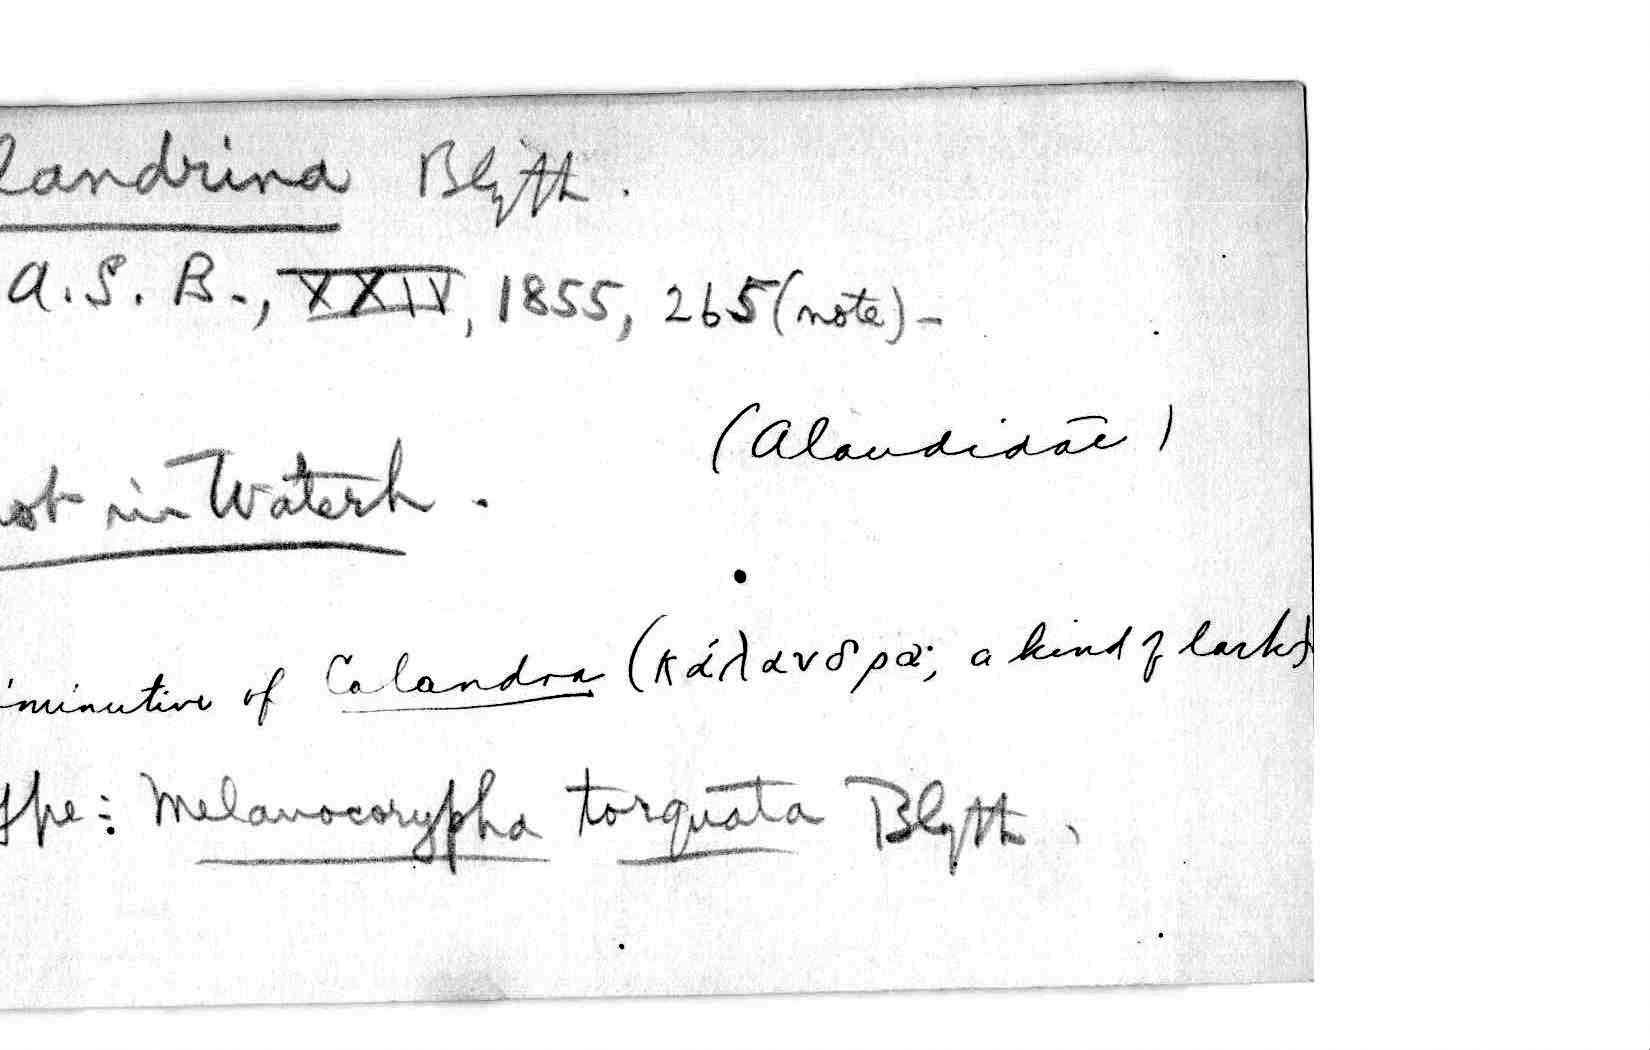 landrina Blyth.
A.S.B., XXIV, 1855, 265 (note) -
(Alaudidae)
not in Waterh.
iminutive of Calandra (κάλανδρα; a kind of lark)
ype: Melanocorypha torquata Blyth.